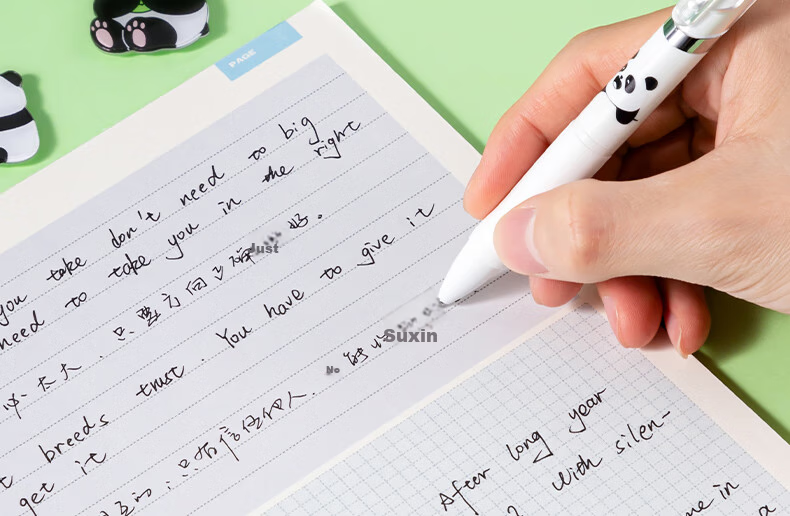 PAGE
you take don't need to big
need to take you in the right
太大,只要方向 Just 好。
breeds trust. You have to give it
get it
只有信任他人. No Suxin
After long year
with silen-
me in
a